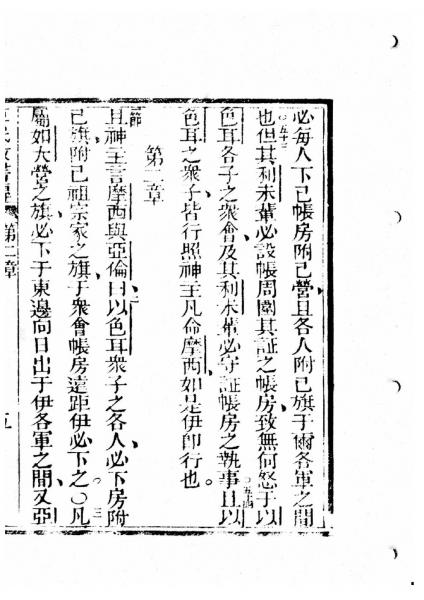 必每人下己帳房附己營且各人附己旗于爾各軍之間
○五十三也但其利未輩必設帳周圍其証之帳房致無何怒于以
色耳各子之衆會及其利未輩必守証帳房之執事○五十四且以
色耳之衆子皆行照神主凡命摩西如是伊卽行也。
第二章
一節且神主言摩西與亞倫曰二以色耳衆子之各人必下房附
己旗附己祖宗家之旗于衆會帳房遠距伊必下之○三凡
廟如大營之旗必下于東邊向日出于伊各軍之間又亞
第二章
五